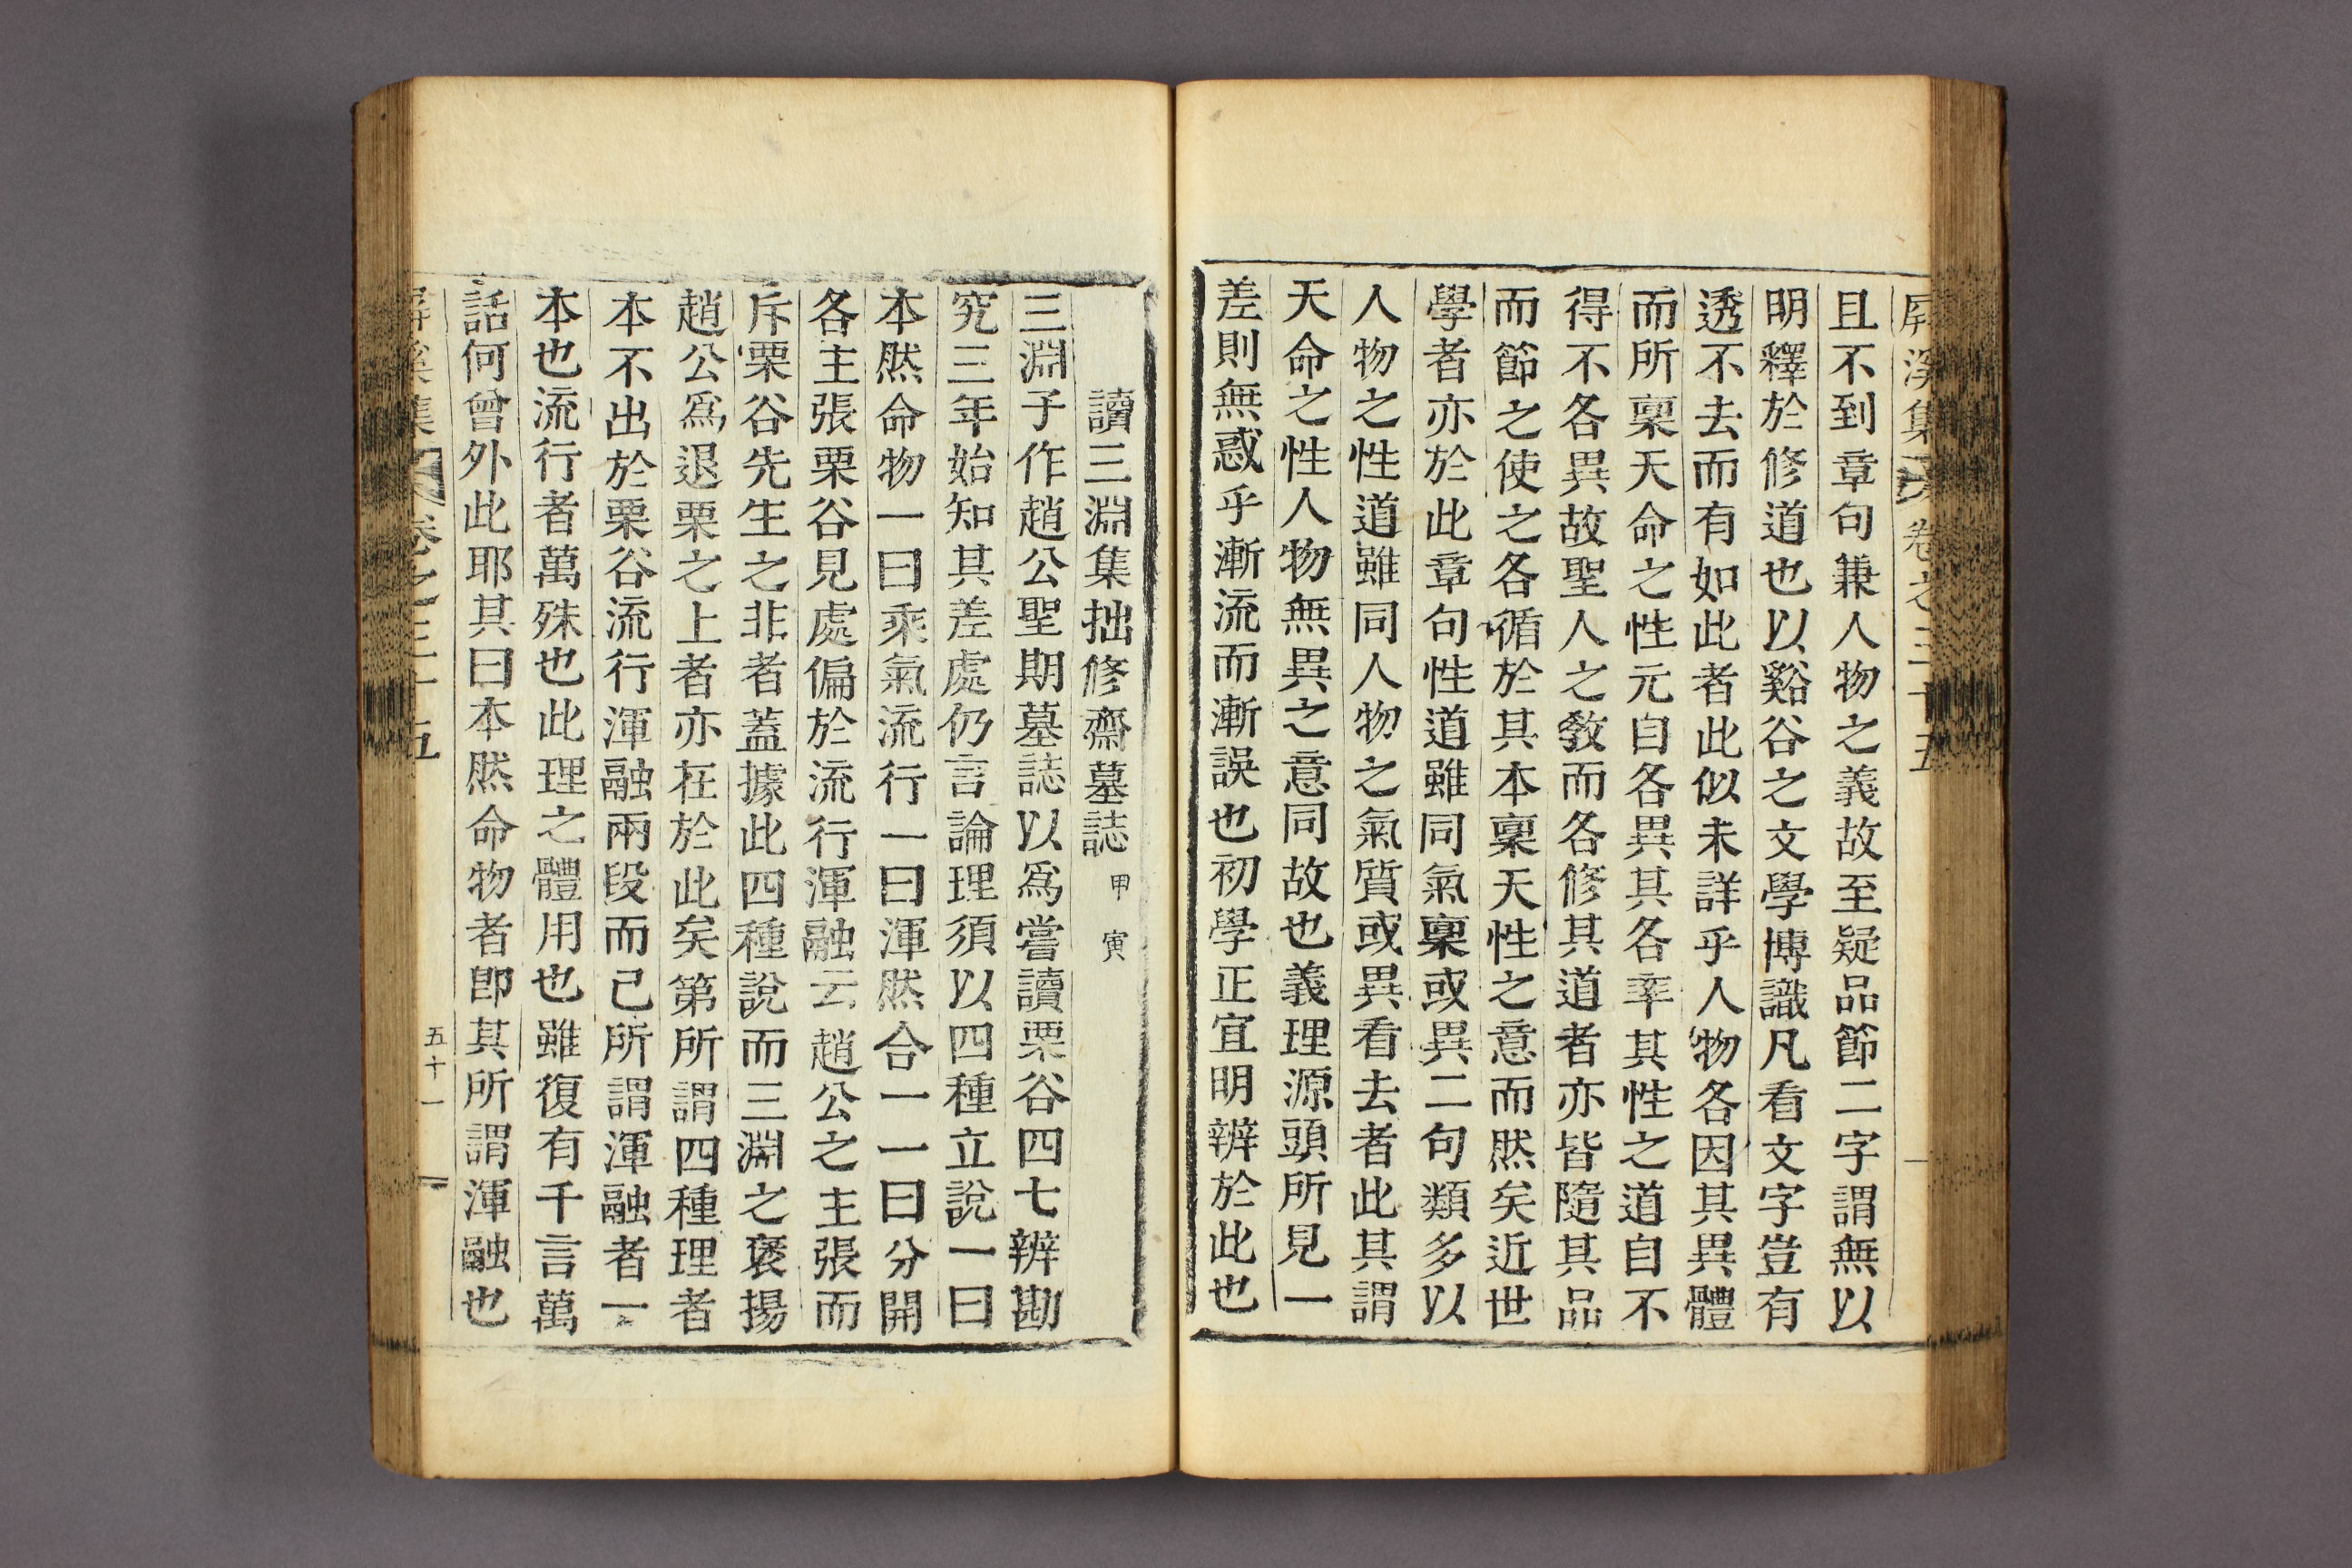 屛溪集 卷之三十五
且不到章句兼人物之義故至疑品節二字謂無以
明釋於修道也以谿谷之文學博識凡看文字豈有
透不去而有如此者此似未詳乎人物各因其異體
而所稟天命之性元自各異其各率其性之道自不
得不各異故聖人之敎而各修其道者亦皆隨其品
而節之使之各循於其本稟天性之意而然矣近世
學者亦於此章句性道雖同氣稟或異二句類多以
人物之性道雖同人物之氣質或異看去者此其謂
天命之性人物無異之意同故也義理源頭所見一
差則無惑乎漸流而漸誤也初學正宜明辨於此也
讀三淵集拙修齋墓誌 甲寅
三淵子作趙公聖期墓誌以爲嘗讀栗谷四七辨勘
究三年始知其差處仍言論理須以四種立說一曰
本然命物一曰乘氣流行一曰渾然合一一曰分開
各主張栗谷見處偏於流行渾融云趙公之主張而
斥栗谷先生之非者蓋據此四種說而三淵之褒揚
趙公爲退栗之上者亦在於此矣第所謂四種理者
本不出於栗谷流行渾融兩段而已所謂渾融者一
本也流行者萬殊也此理之體用也雖復有千言萬
話何曾外此耶其曰本然命物者卽其所謂渾融也
屛溪集 卷之三十五 五十一